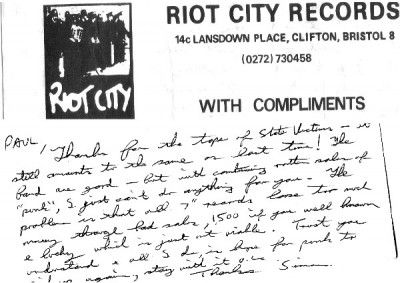 RIOT CITY
RIOT CITY RECORDS
14c LANSDOWN PLACE, CLIFTON, BRISTOL 8
(0272) 730458
WITH COMPLIMENTS
PAUL,
Thanks for the tape of State Victims - it
still amounts to the same as last time! The
band are good - but with continuing rotten sales of
"punk", I just can't do anything for you. The
problem is that all 7" records lose too much
money through bad sales, 1500 if you well known
& lucky which is just not viable. Trust you
understand & all I do is hope for punk to
again, stay with it
Thanks Simon